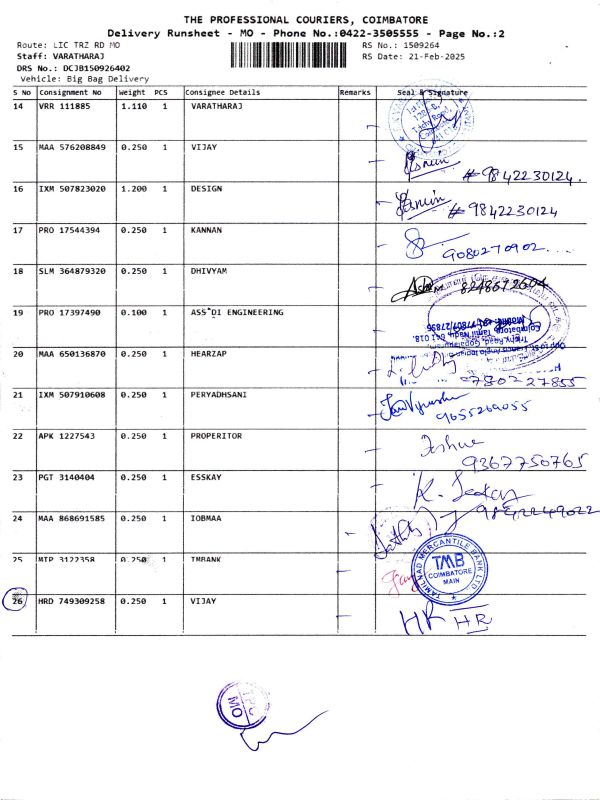 THE PROFESSIONAL COURIERS, COIMBATORE
Delivery Runsheet - MO - Phone No.:0422-3505555 - Page No.:2
Route: LIC TRZ RD MO
RS No.: 1509264
Staff: VARATHARAJ
RS Date: 21-Feb-2025
DRS No.: DCJB150926402
Vehicle: Big Bag Delivery
S No Consignment No Weight PCS Consignee Details Remarks Seal & Signature
14 VRR 111885 1.110 1 VARATHARAJ
15 MAA 576208849 0.250 1 VIJAY
#9842230124.
16 IXM 507823020 1.200 1 DESIGN
#9842230124
17 PRO 17544394 0.250 1 KANNAN
9080270902...
18 SLM 364879320 0.250 1 DHIVYAM
8248672604
19 PRO 17397490 0.100 1 ASS"DI ENGINEERING
20 MAA 650136870 0.250 1 HEARZAP
9780227855
21 IXM 507910608 0.250 1 PERYADHSANI
9655269055
22 APK 1227543 0.250 1 PROPERITOR
9367750765
23 PGT 3140404 0.250 1 ESSKAY
24 MAA 868691585 0.250 1 IOBMAA
9842249022
25 MTP 3122358 0.250 1 TMBANK
TAMILNAD MERCANTILE BANK LTD.
TMB
COIMBATORE
MAIN
26 HRD 749309258 0.250 1 VIJAY
HR HR
TPC
MO